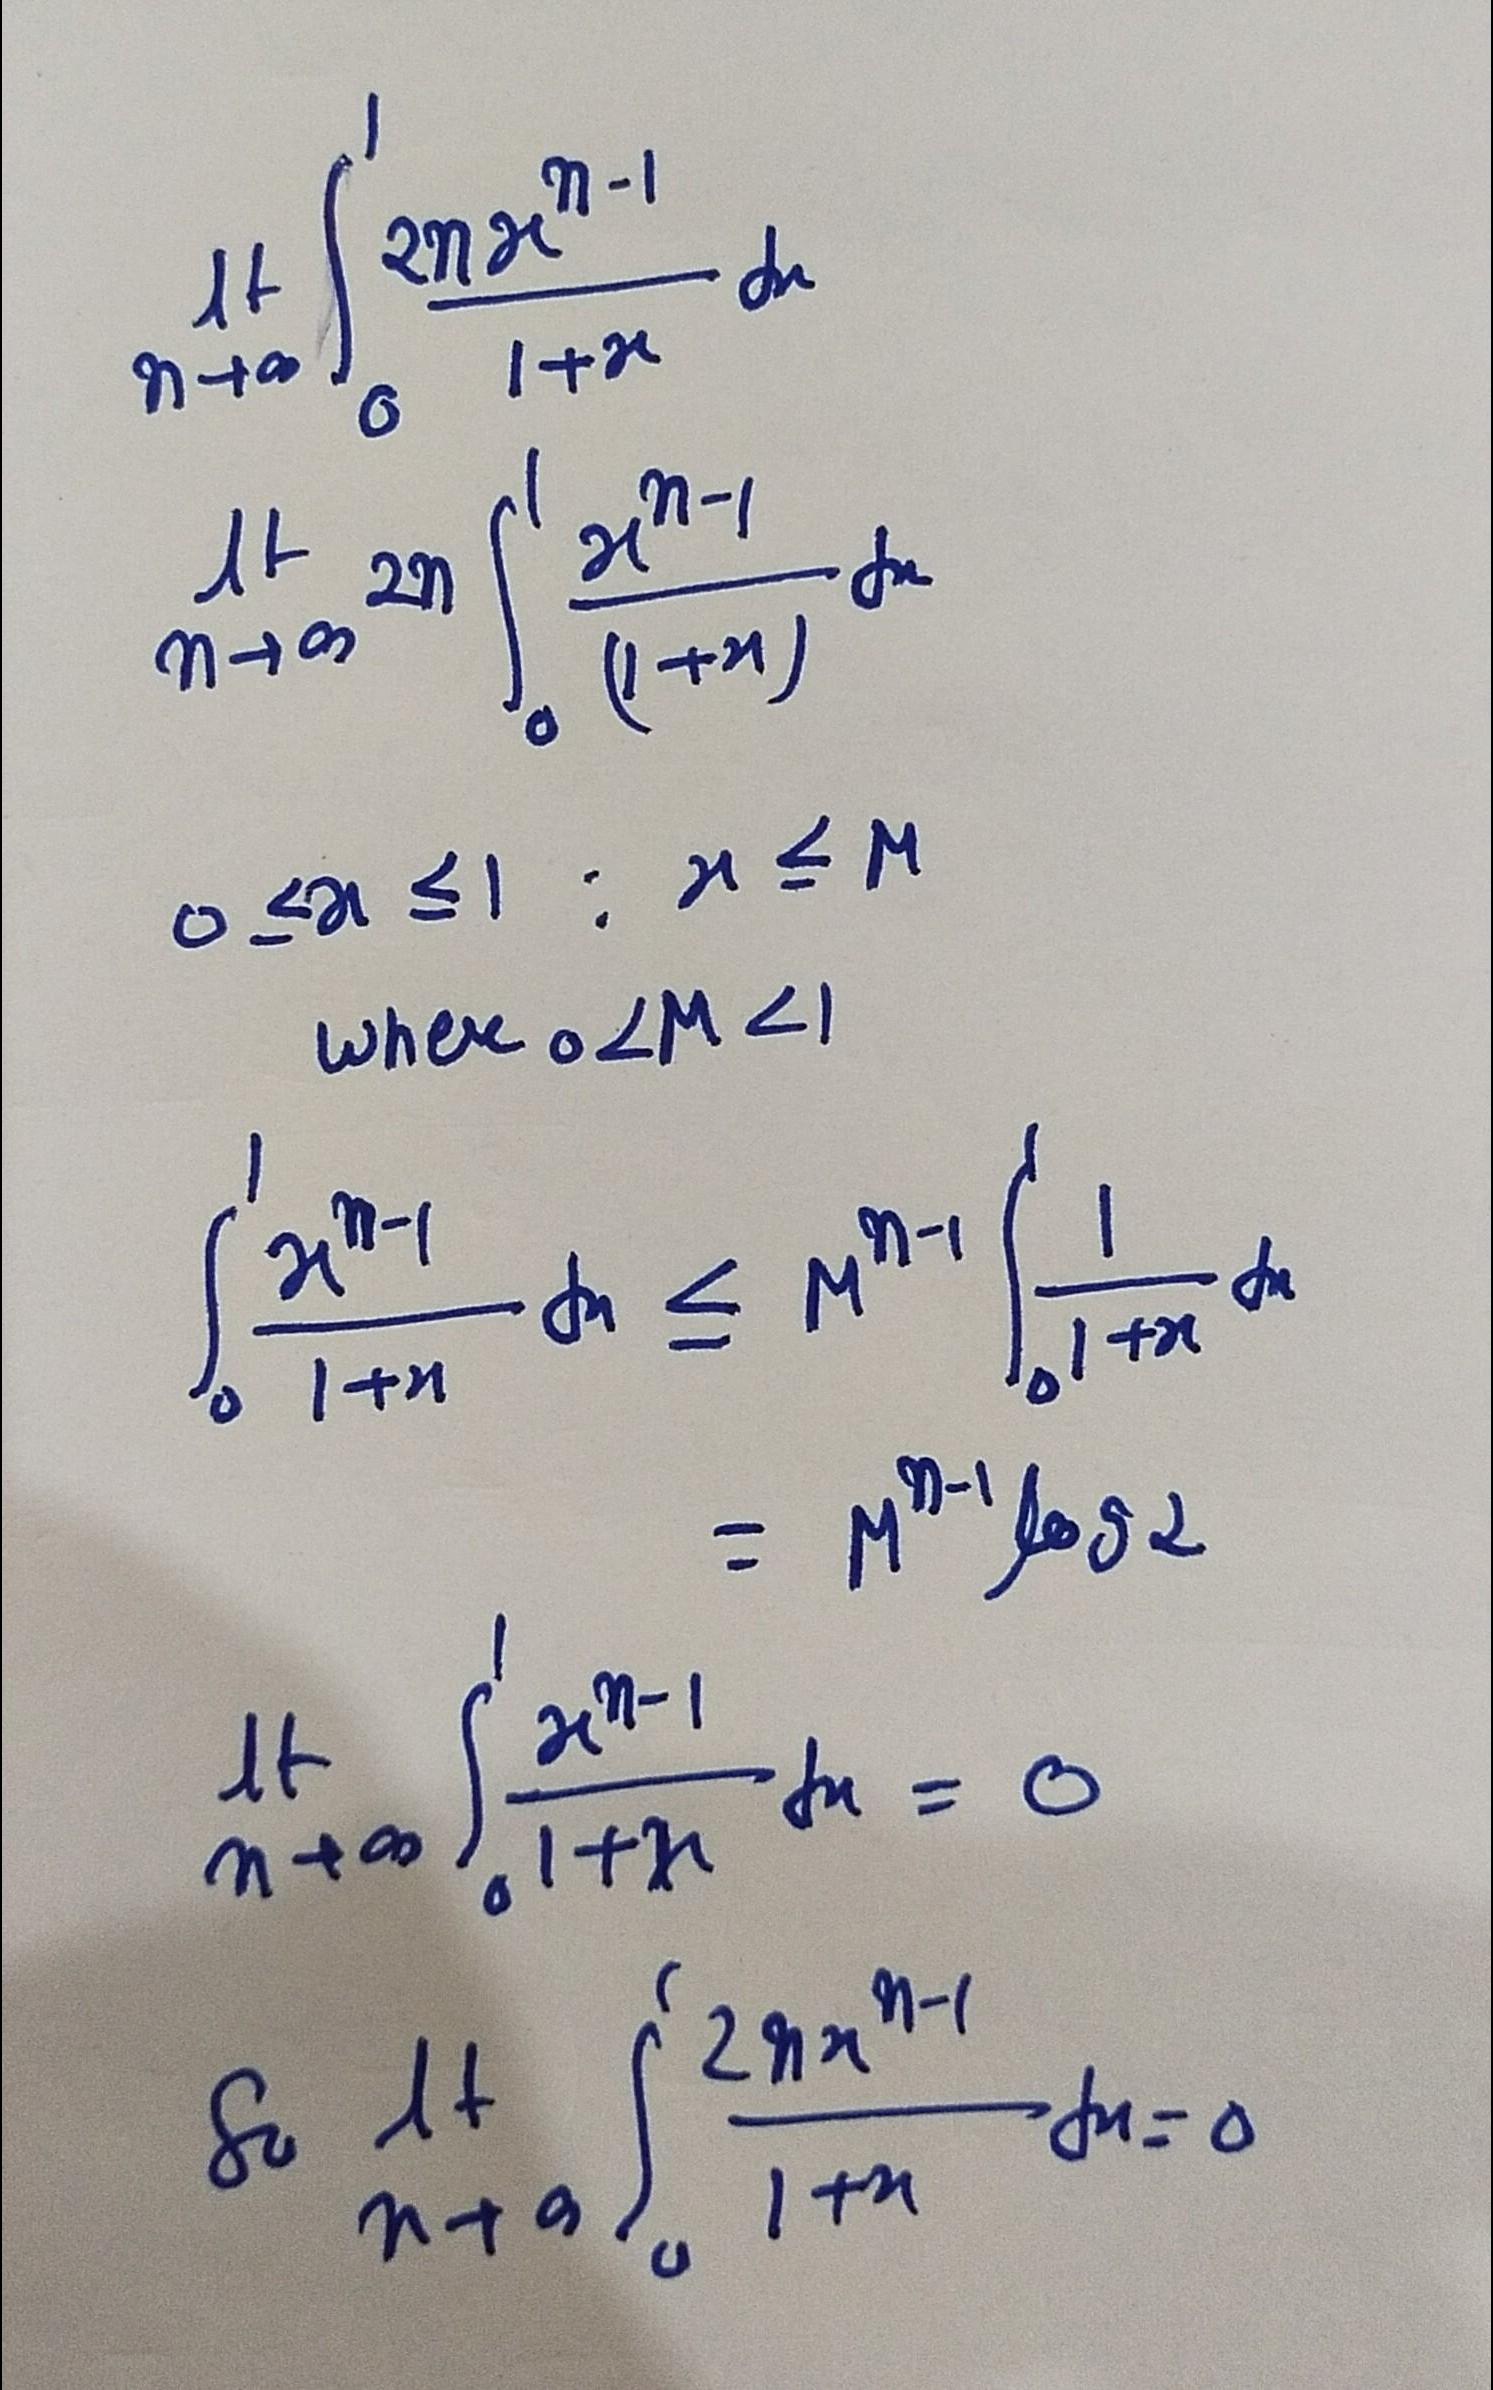 lt n→∞ ∫₀¹ 2nxⁿ⁻¹/1+x dx
lt n→∞ 2n ∫₀¹ xⁿ⁻¹/(1+x) dx
0 ≤ x ≤ 1 : x ≤ M
where 0 < M < 1
∫₀¹ xⁿ⁻¹/1+x dx ≤ Mⁿ⁻¹ ∫₀¹ 1/1+x dx
= Mⁿ⁻¹ log 2
lt n→∞ ∫₀¹ xⁿ⁻¹/1+x dx = 0
So lt n→∞ ∫₀¹ 2nxⁿ⁻¹/1+x dx = 0